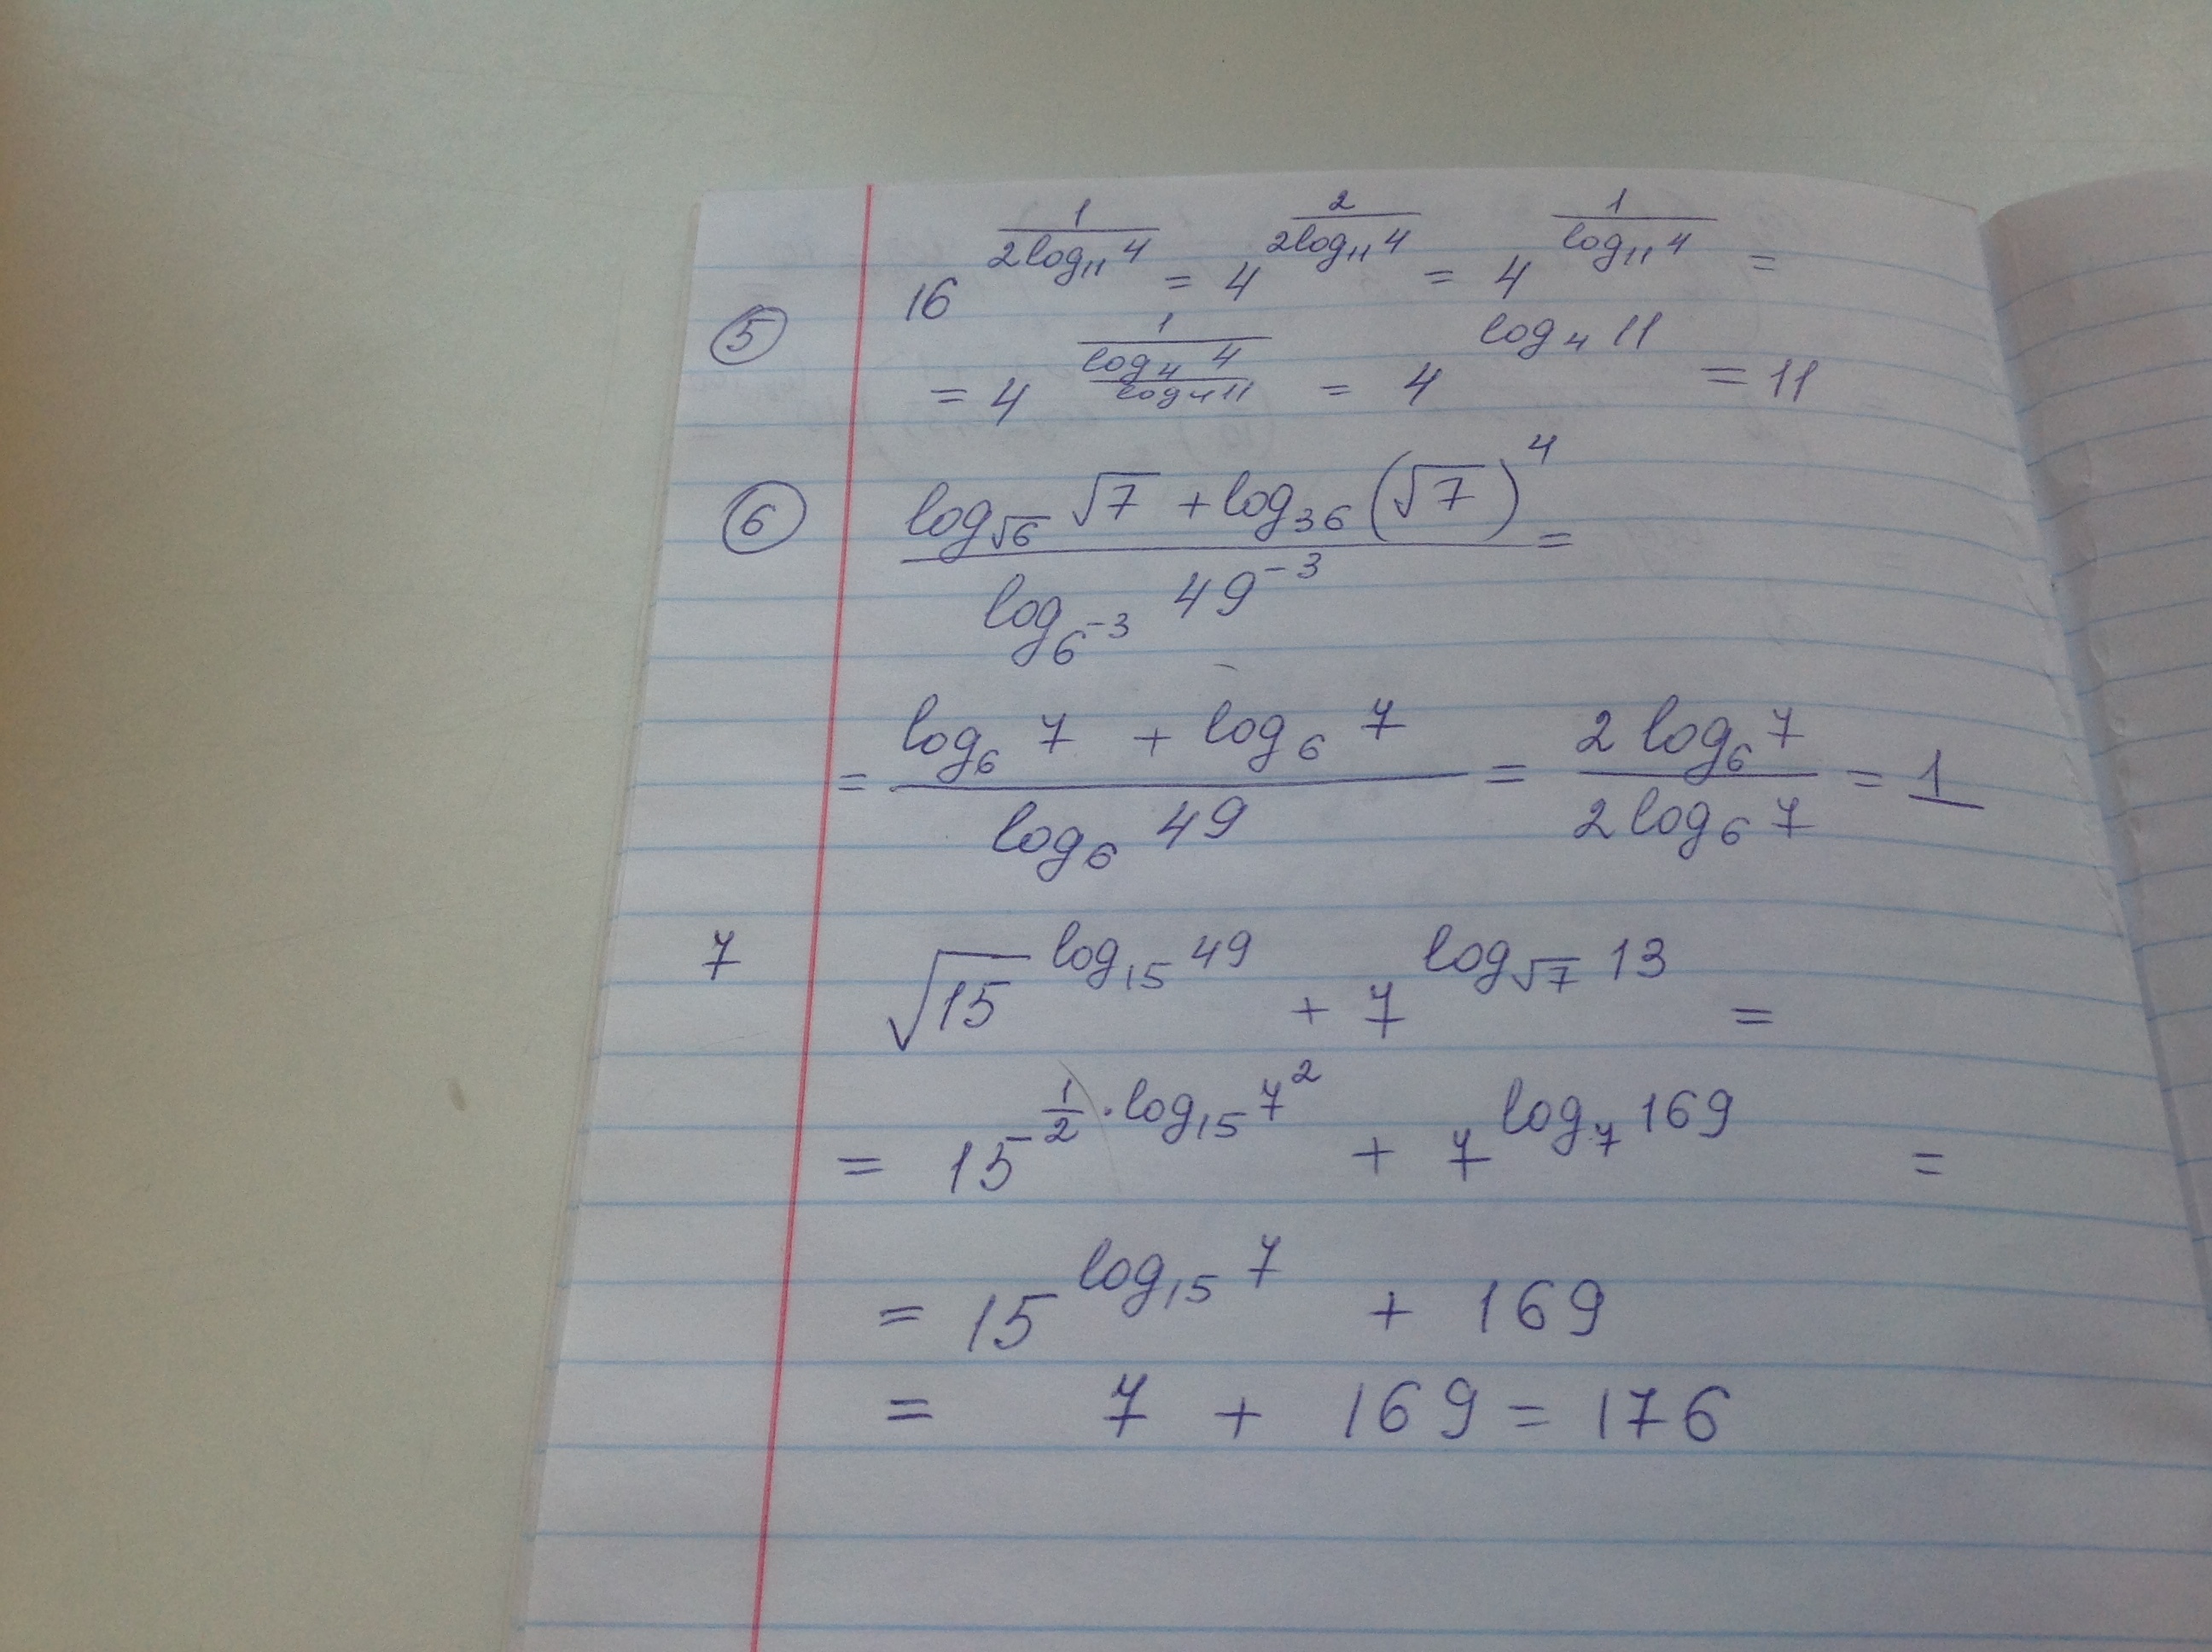 ⑤ 16^{\frac{1}{2\log_{11} 4}} = 4^{\frac{2}{2\log_{11} 4}} = 4^{\frac{1}{\log_{11} 4}} =
= 4^{\frac{1}{\frac{\log_4 4}{\log_4 11}}} = 4^{\log_4 11} = 11
⑥ \frac{\log_{\sqrt{6}} \sqrt{7} + \log_{36} (\sqrt{7})^4}{\log_{6^{-3}} 49^{-3}} =
= \frac{\log_6 7 + \log_6 7}{\log_6 49} = \frac{2\log_6 7}{2\log_6 7} = 1
7 \sqrt{15}^{\log_{15} 49} + 7^{\log_{\sqrt{7}} 13} =
= 15^{\frac{1}{2} \cdot \log_{15} 7^2} + 7^{\log_7 169} =
= 15^{\log_{15} 7} + 169
= 7 + 169 = 176